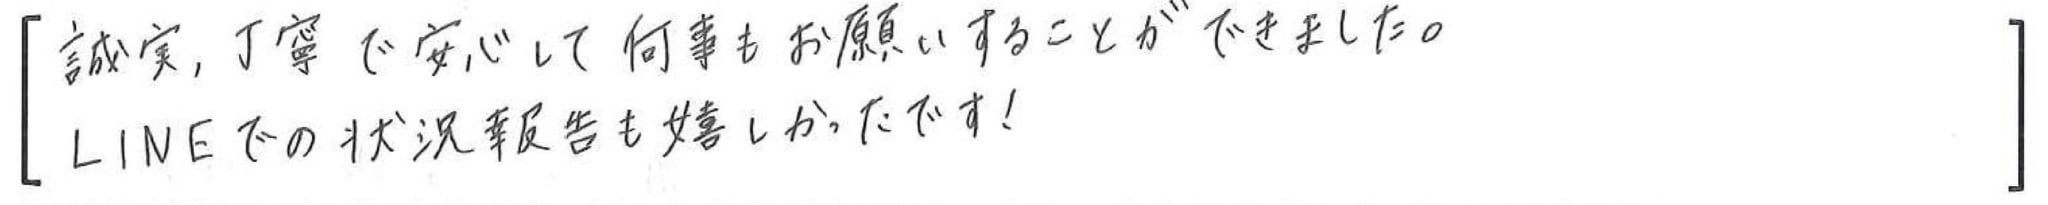 誠実,丁寧で安心して何事もお願いすることができました。
LINEでの状況報告も嬉しかったです!